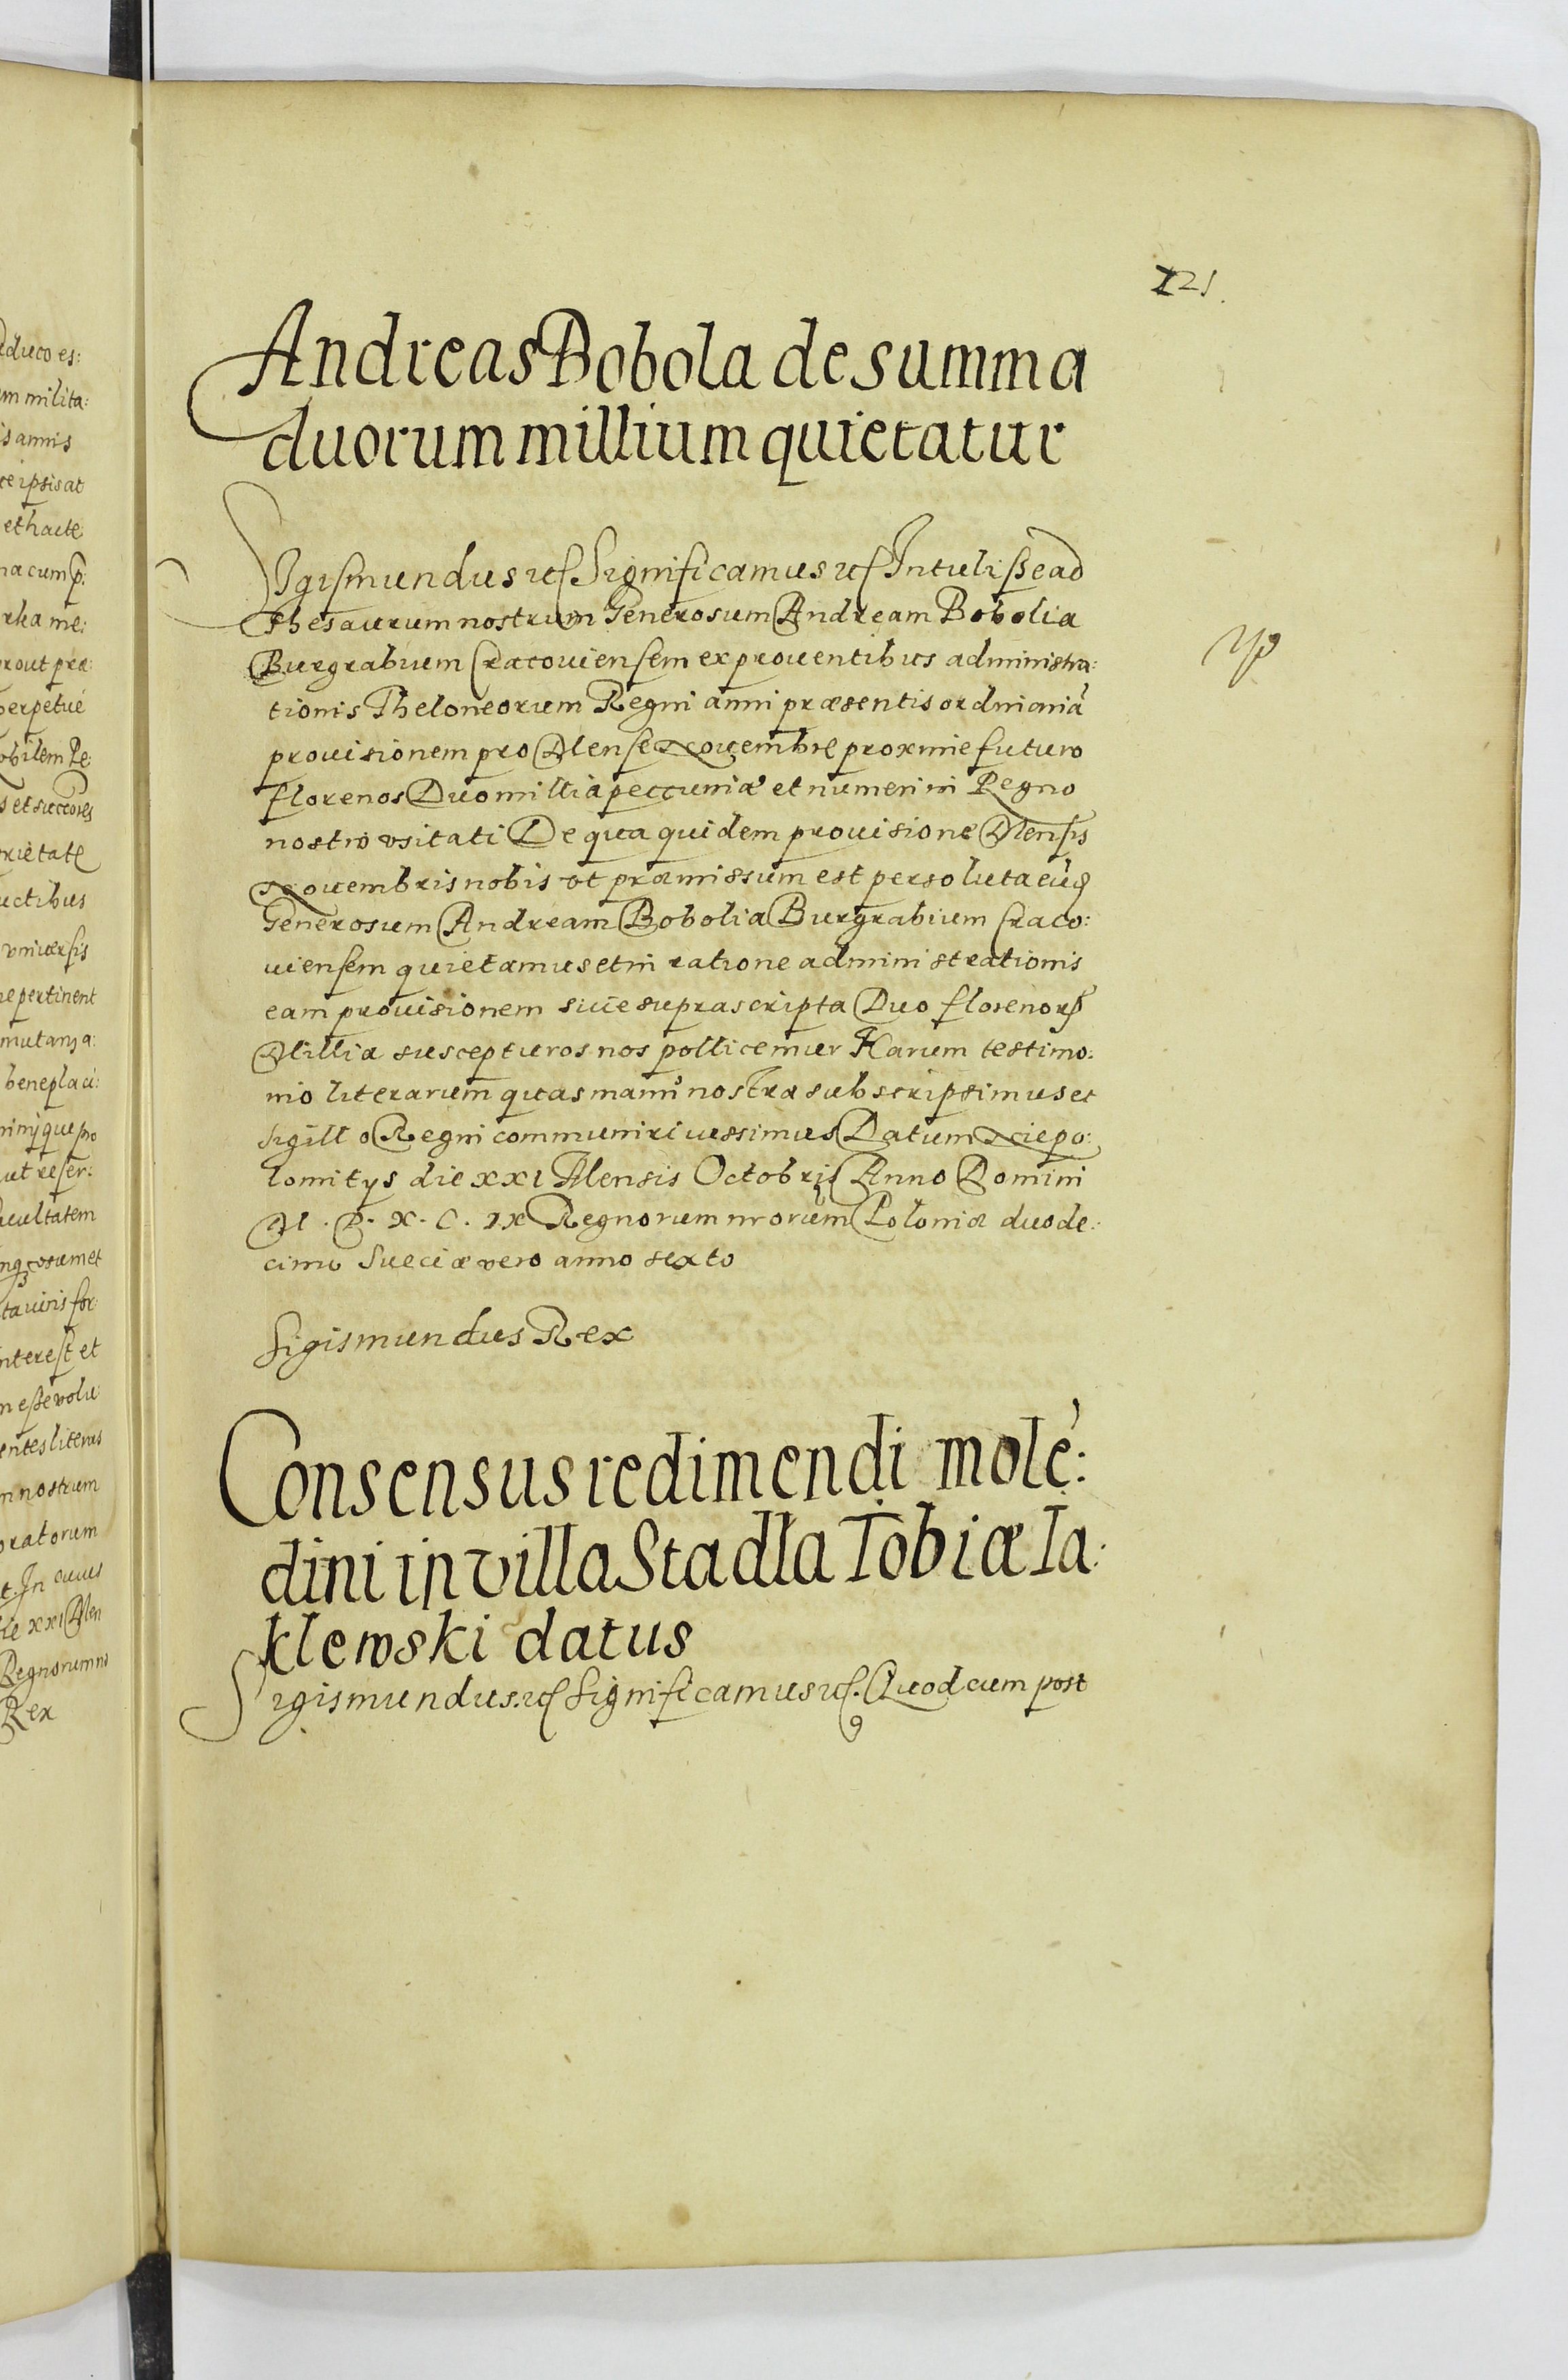 121.
Andreas Bobola de summa
duorum millium quietatur
Sigismundus etc Significamus etc Intulisse ad
Thesaurum nostrum Generosum Andream Bobolia
Burgrabium Cracouiensem ex prouentibus administra:
tionis Theloneorum Regni anni præsentis ordinariã
prouisionem pro Mense Nouembre proxime futuro
florenos Duo millia peccuniæ et numeri in Regno
nostro vsitati De qua quidem prouisione Mensis
Nouembris nobis vt præmissum est persoluta eũd
Generosum Andream Bobolia Burgrabium Craco:
uiensem quietamus et in ratione administrationis
eam prouisionem siue suprascripta Duo florenorũ
Millia suscepturos nos pollicemur Harum testimo:
nio literarum quas manu nostra subscripsimus et
Sigillo Regni communiri iussimus Datum Niepo:
lomitys die XXI Mensis Octobris Anno Domini
M. D. X. C. IX Regnorum nrorum Poloniæ duode:
cimo Sueciæ vero anno sexto
Sigismundus Rex
Consensus redimendi molẽ:
dini in villa Stadla Tobiæ Ia:
klewski datus
Sigismundus etc Significamus etc. Quod cum post
aduco es:
um milita:
is annis
ce ipsis at
et hacte
na cum p:
rha me:
prout præ:
perpetue
obilem Pe:
s et succores
rietate
uctibus
vniuersis
re pertinent
mutanza:
beneplaci:
minijque pro
uet reser:
facultatem
ta uiris for:
interest et
m esse volu:
entes literas
m nostrum
oratorum
t. In cuius
die XXI Men
Regnorum no
Rex